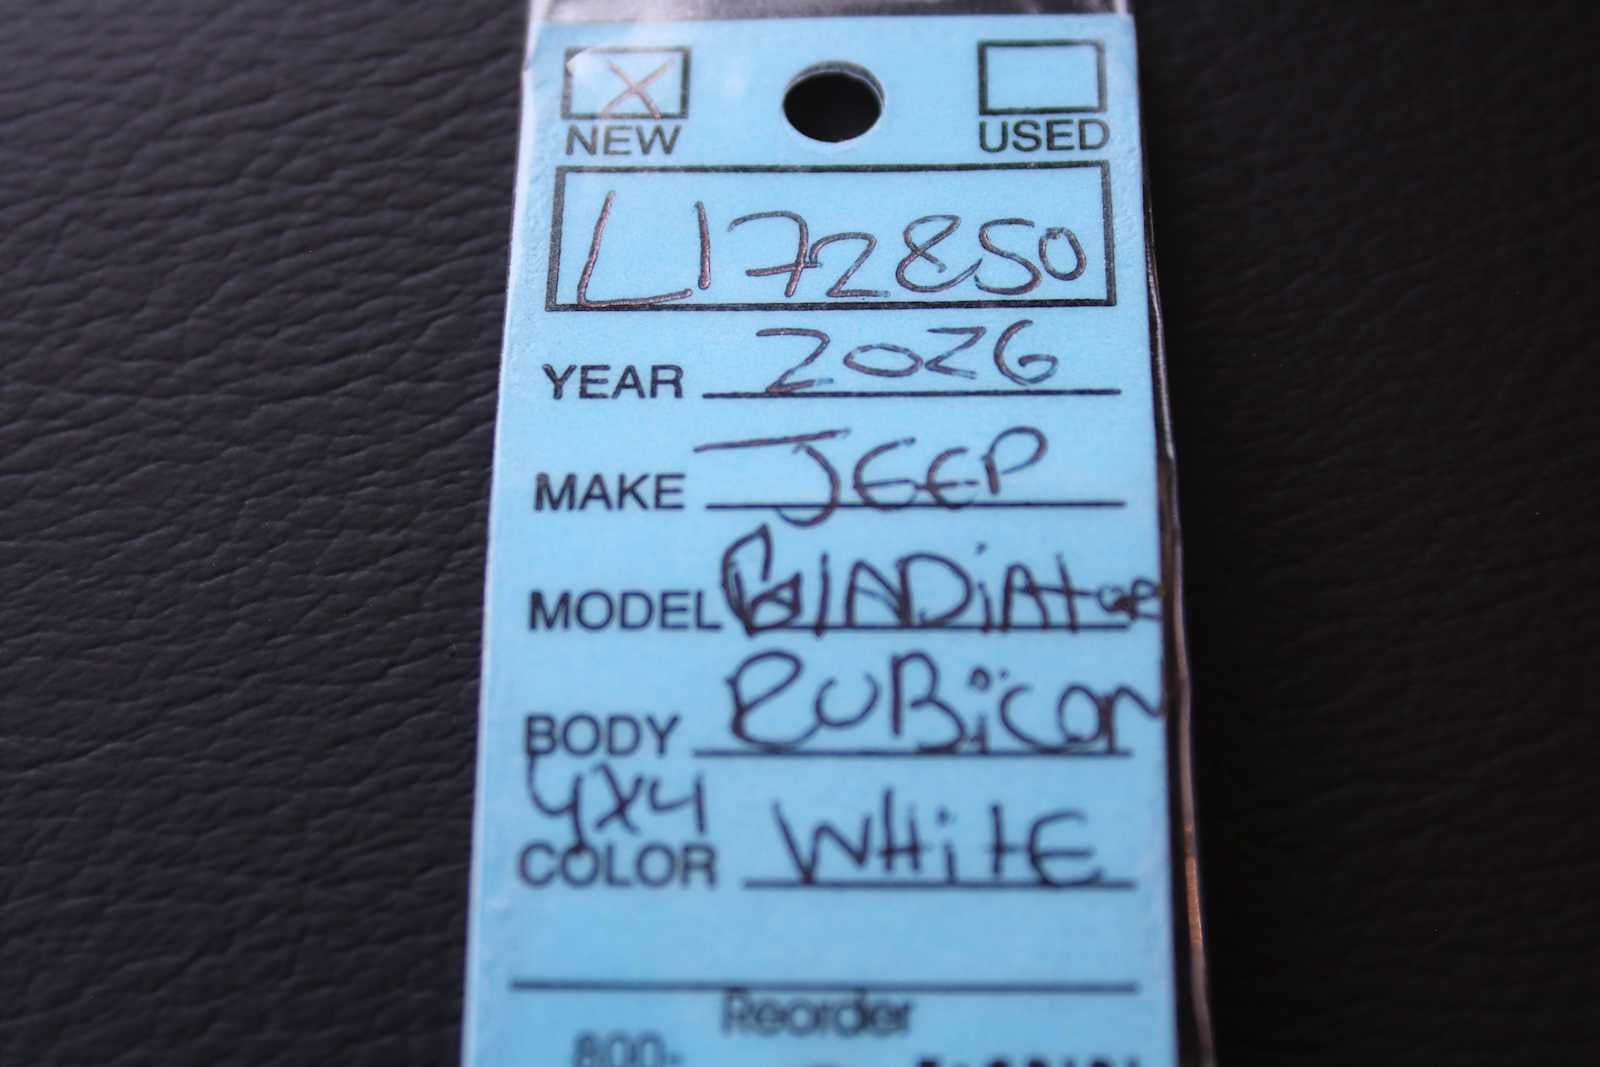 X
NEW USED
L172850
YEAR 2026
MAKE JEEP
MODEL GlADiAtoR
BODY RUBiCON
4X4
COLOR WHitE
Reorder
800-